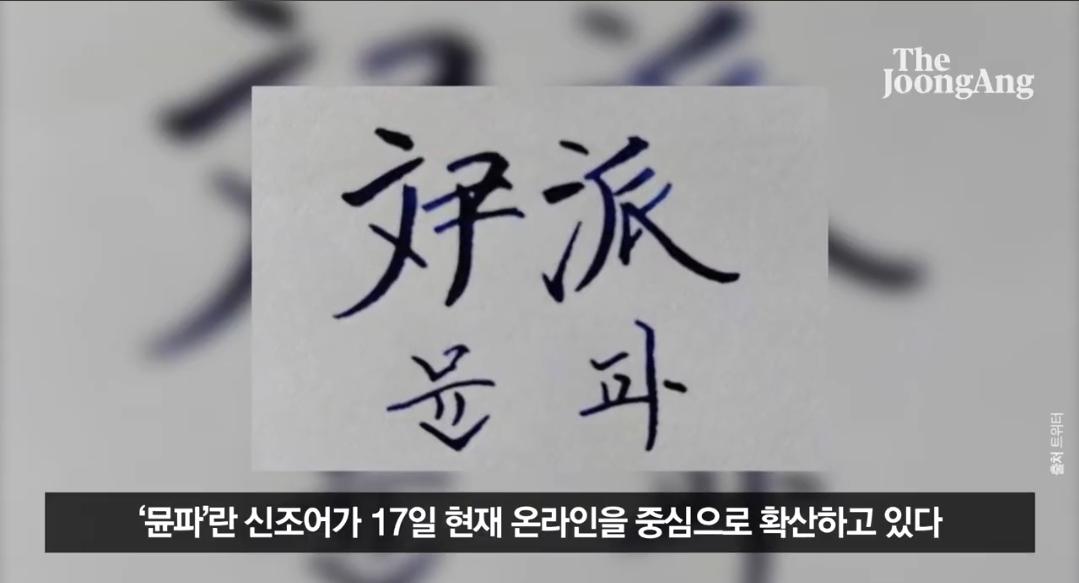 The
JoongAng
派
뮨 파
출처 트위터
‘뮨파’란 신조어가 17일 현재 온라인을 중심으로 확산하고 있다